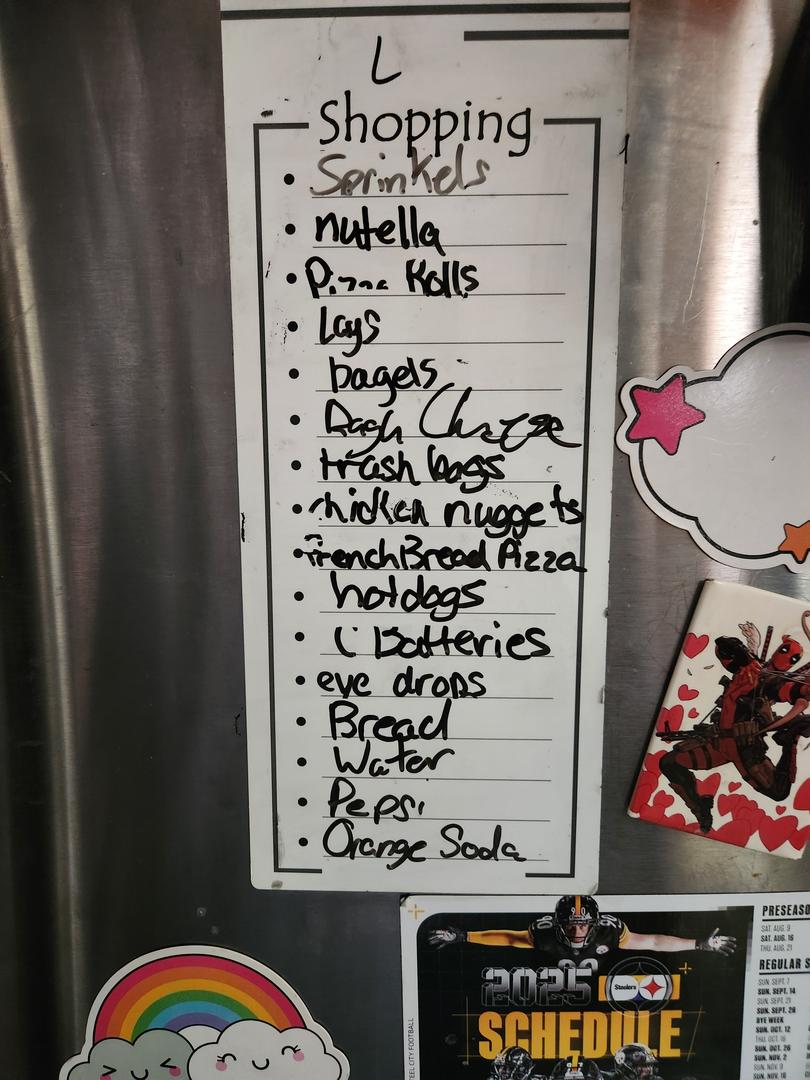 L
Shopping
Sprinkels
nutella
Pizza Rolls
Lays
bagels
trash bags
chicken nuggets
French Bread Pizza
hotdogs
C Batteries
eye drops
Bread
Water
Pepsi
Orange Soda
90 90
2025 Steelers
SCHEDULE
PRESEASO
SAT. AUG. 9
SAT. AUG. 16
THU. AUG. 21
REGULAR S
SUN. SEPT. 7
SUN. SEPT. 14
SUN. SEPT. 21
SUN. SEPT. 28
BYE WEEK
SUN. OCT. 12
THU. OCT. 16
SUN. OCT. 26
SUN. NOV. 2
SUN. NOV. 9
SUN. NOV. 16